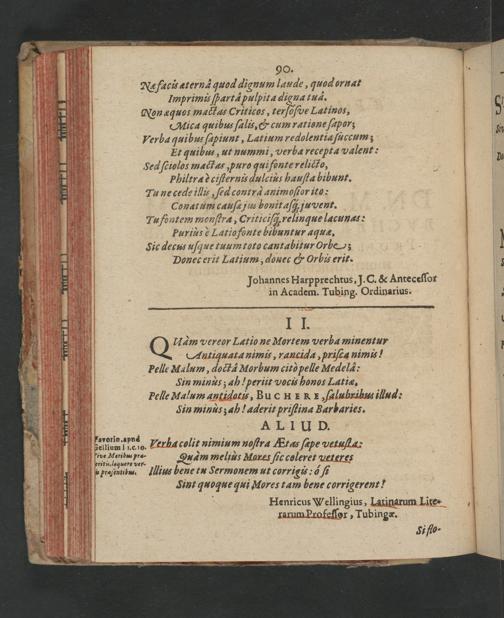 90.
Næ facis æternâ quod dignum laude, quod ornat
Imprimis spartâ pulpita digna tuâ.
Non æquos mactas Criticos, tersosve Latinos,
Mica quibus salis, & cum ratione sapor;
Verba quibus sapiunt, Latium redolentia succum;
Et quibus, ut nummi, verba recepta valent:
Sed sciolos mactas, puro qui fonte relicto,
Philtra è cisternis dulciùs hausta bibunt.
Tu ne cede illis, sed contrà animosior ito:
Conatum causa jus bonitasq; juvent.
Tu fontem monstra, Criticisq; relinque lacunas:
Puriùs è Latio fonte bibuntur aquæ,
Sic decus usque tuum toto cantabitur Orbe;
Donec erit Latium, donec & Orbis erit.
Johannes Harpprechtus, J. C. & Antecessor
in Academ. Tubing. Ordinarius.
II.
QUàm vereor Latio ne Mortem verba minentur
Antiquata nimis, rancida, prisca nimis!
Pelle Malum, doctâ Morbum citò pelle Medelâ:
Sin minùs; ah! periit vocis honos Latiæ.
Pelle Malum antidotis, BUCHERE, salubribus illud:
Sin minùs; ah! aderit pristina Barbaries.
ALIUD.
Verba colit nimium nostra Ætas sæpe vetusta:
Quàm meliùs Mores sic coleret veteres
Illius bene tu Sermonem ut corrigis: ô si
Sint quoque qui Mores tam bene corrigerent!
Favorin. apud
Gellium l 1. c. 10.
Vive Moribus præ-
teritis, loquere ver-
bis præsentibus.
Henricus Wellingius, Latinarum Lite-
rarum Professor, Tubingæ.
Si sto-